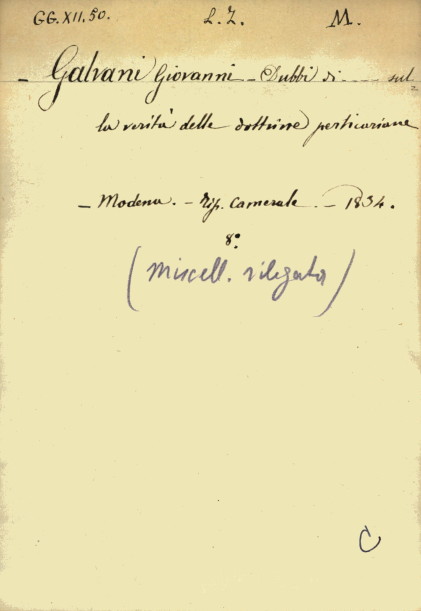 GG.XII.50. L.Z. M.
- Galvani Giovanni - Dubbi di ---- sul=
la verità delle dottrine perticariane
- Modena. - Tip. Camerale. - 1834.
8.°
(Miscell. rilegata)
C